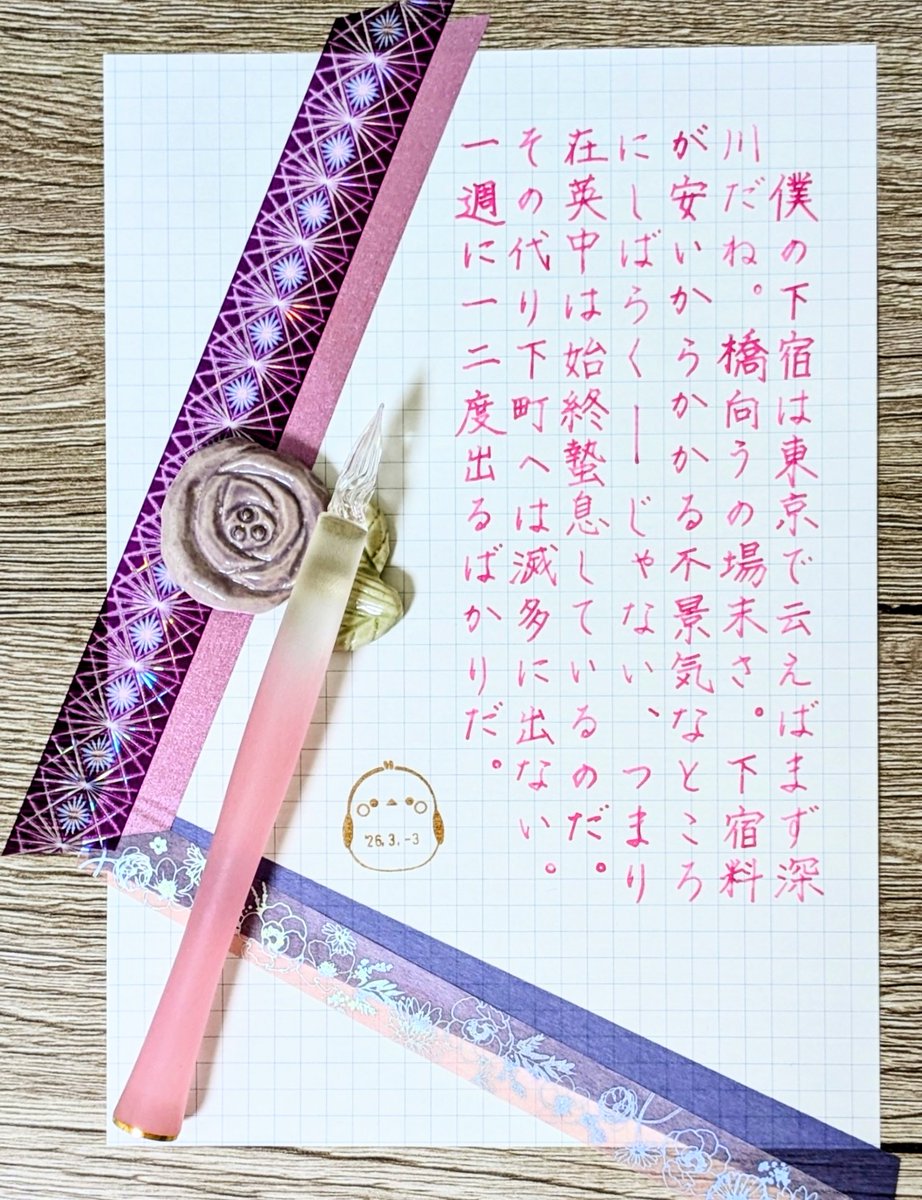 僕の下宿は東京で云えばまず深
川だね。橋向うの場末さ。下宿料
が安いからかかる不景気なところ
にしばらく―じゃない、つまり
在英中は始終蟄息しているのだ。
その代り下町へは滅多に出ない。
一週に一二度出るばかりだ。
'26.3.-3